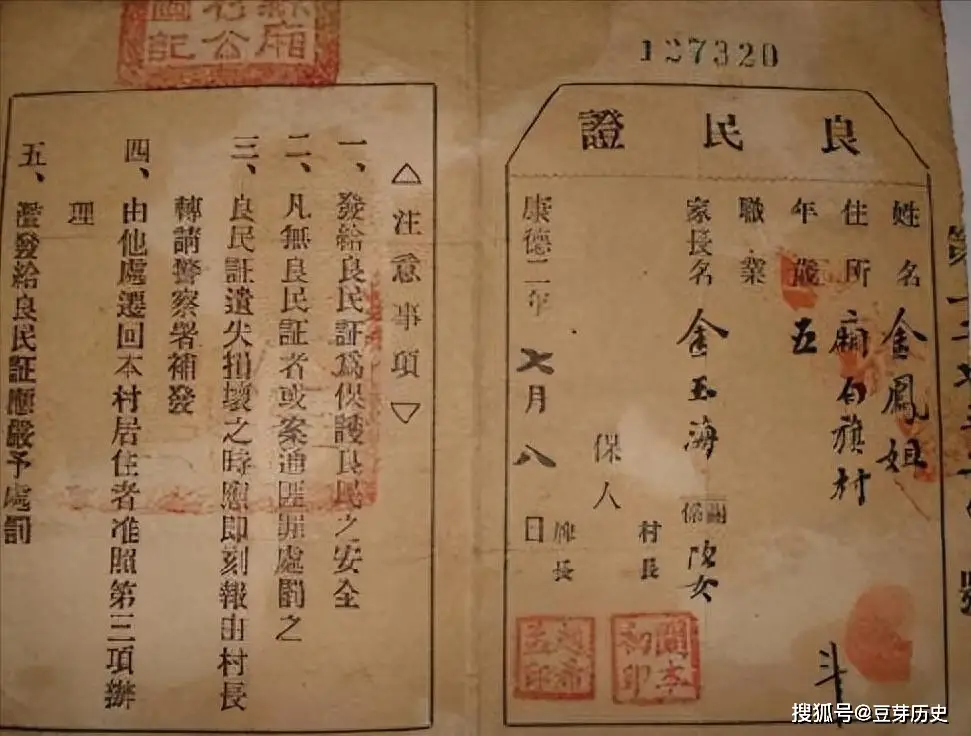 127320
良民證
姓名 金鳳姐
住所 廂白旗村
年歲 五
職業
家長名 金玉海 關係 次女
保人
村長
牌長
康德二年七月八日
斗
廂
公
圖記
△注意事項▽
一、發給良民証爲保護良民之安全
二、凡無良民証者或案通匪罪處罰之
三、良民証遺失損壞之時應即刻報由村長
轉請警察署補發
四、由他處遷回本村居住者准照第三項辦
理
五、濫發給良民証應嚴予處罰
搜狐号@豆芽历史